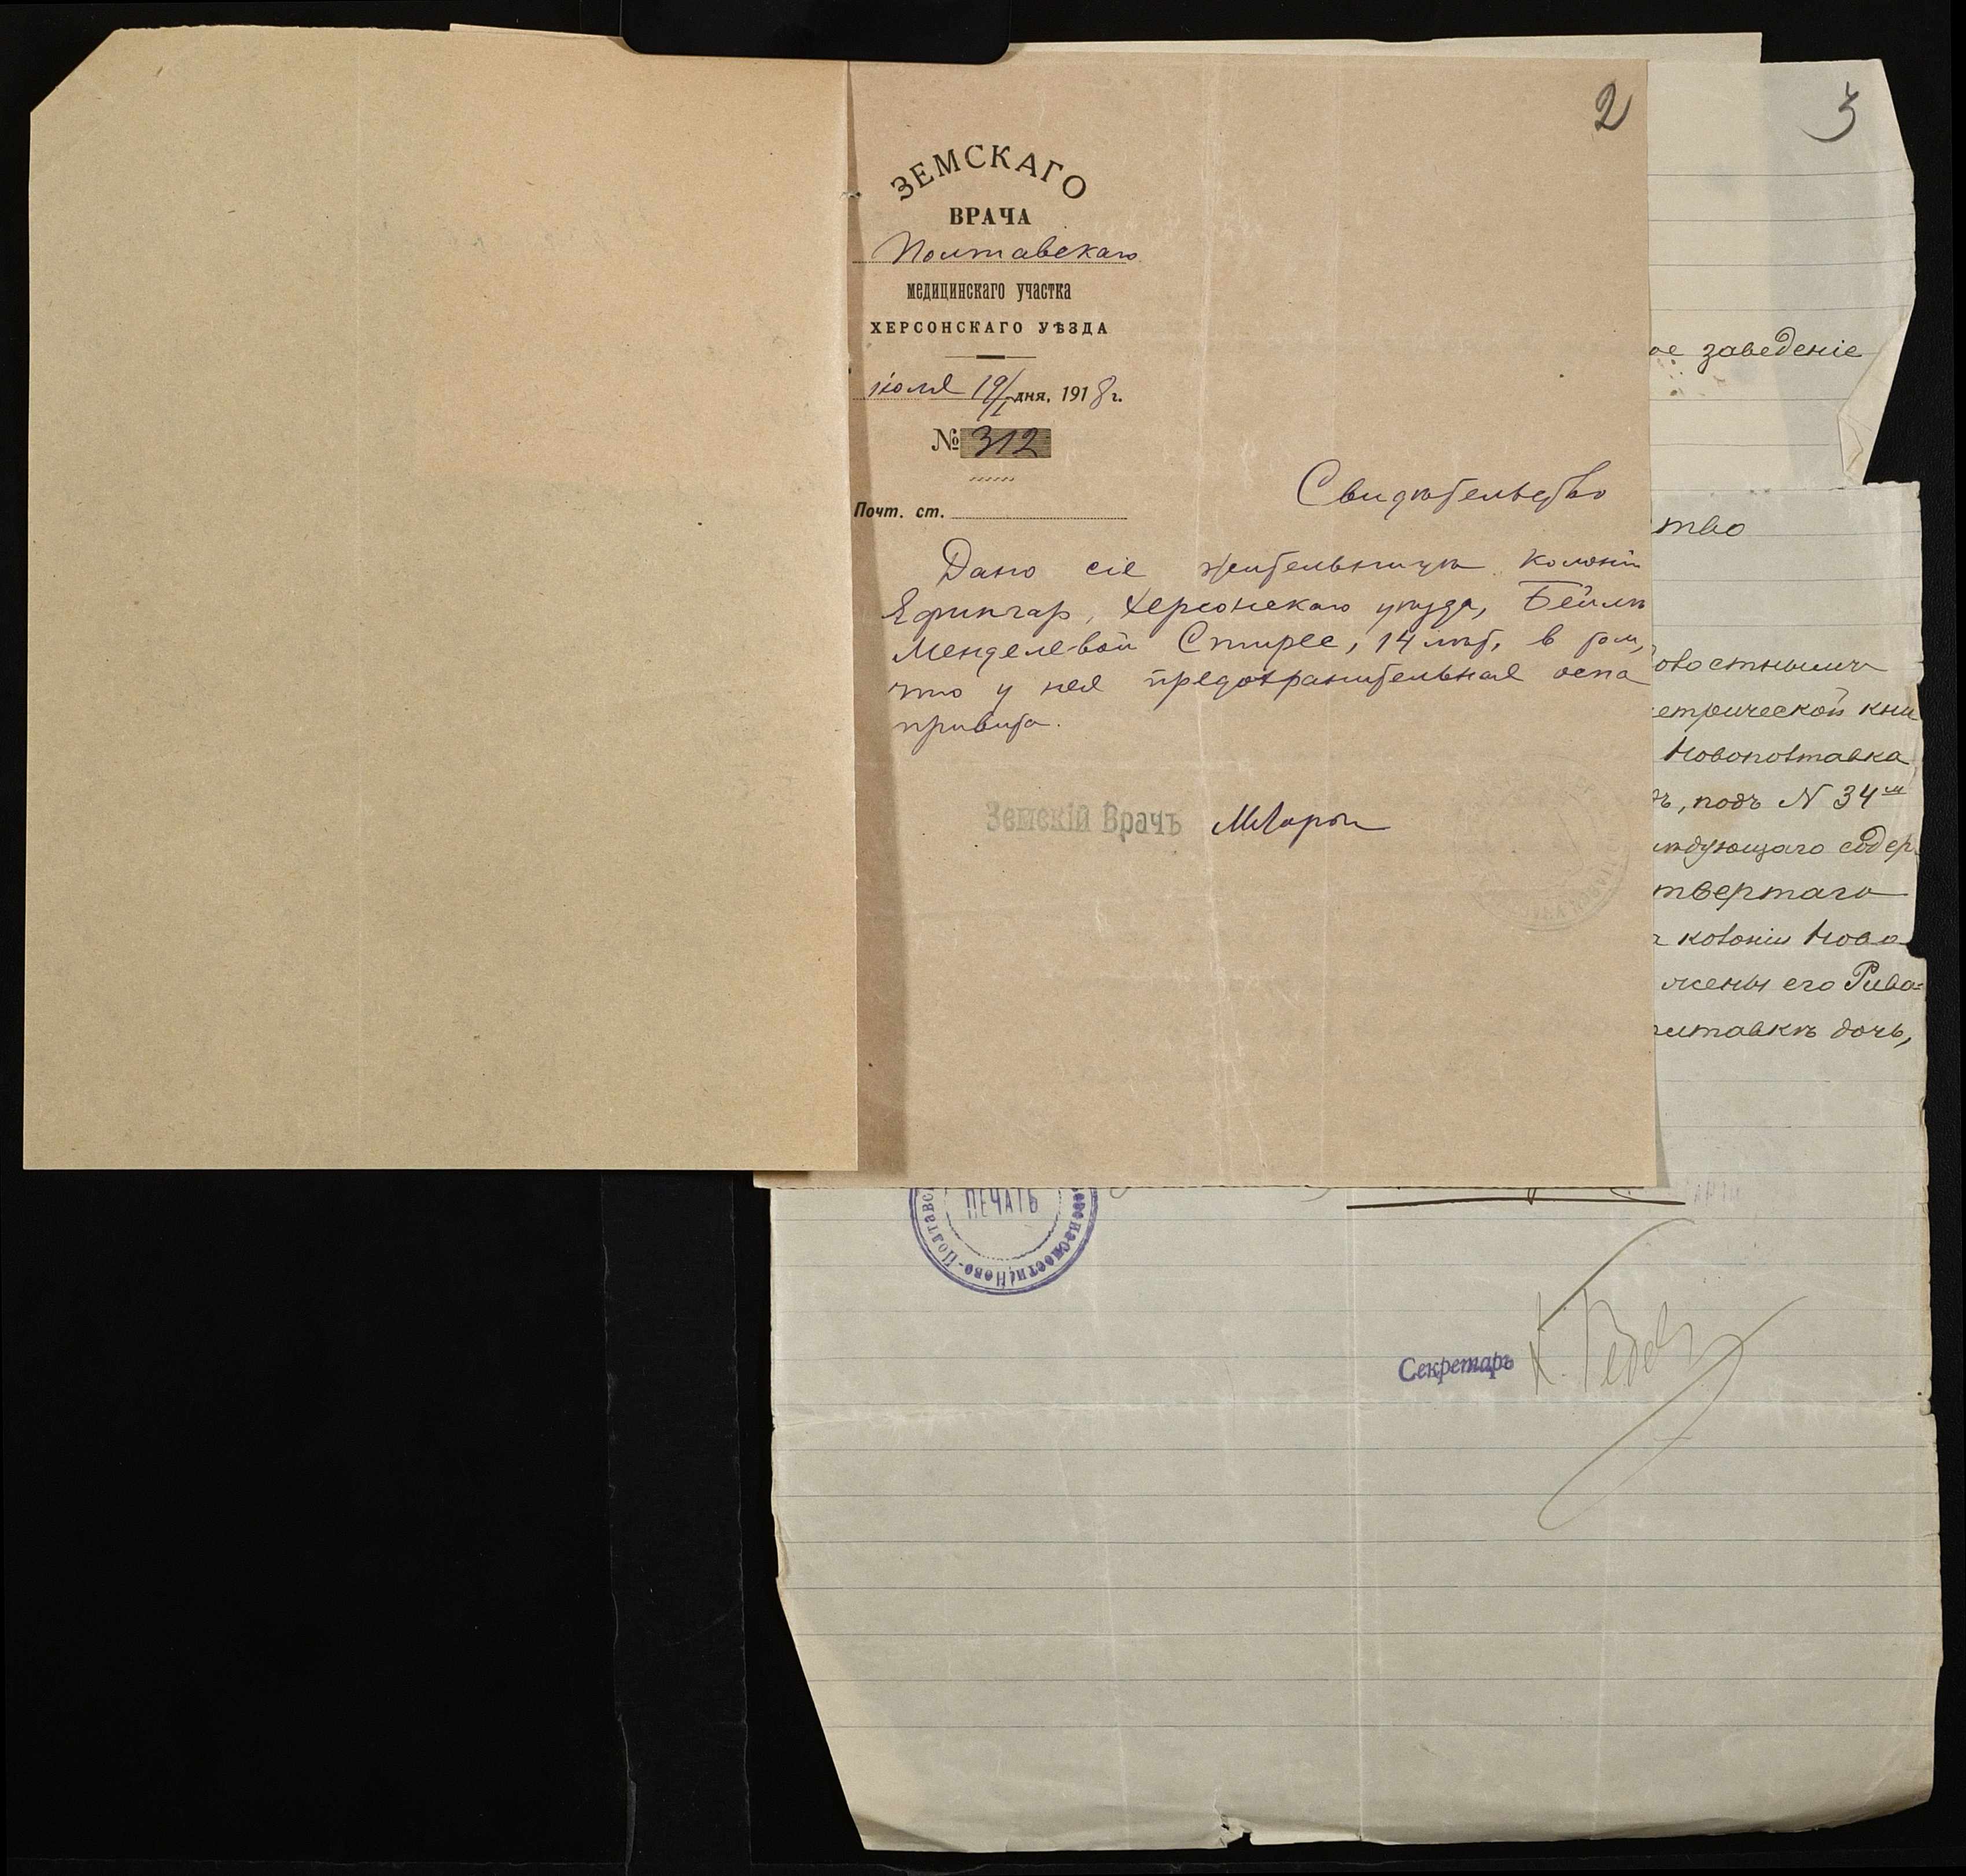 2
ЗЕМСКАГО
ВРАЧА
Полтавскаго
медицинскаго участка
ХЕРСОНСКАГО УѢЗДА
июля 19/ дня, 1918 г.
№ 312
Почт. ст.
Свидѣтельство
Дано сіе жительницѣ колоніи
Ефингар, Херсонскаго уѣзда, Бейлѣ
Менделевой Спирее, 14 лѣт, в том,
что у нея предохранительная оспа
привита.
Земскій Врачъ
3
ое заведеніе
тво
етрической кни
Новополтавка
ъ, подъ N 34м
ѣдующаго содер
твертаго
колоніи Ново
жены его Рива=
олтавкѣ дочь,
ПЕЧАТЬ
Ново-Полтавс
Секретарь